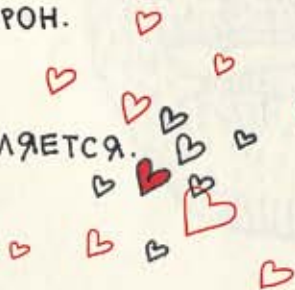 РОН.
ЛЯЕТСЯ.